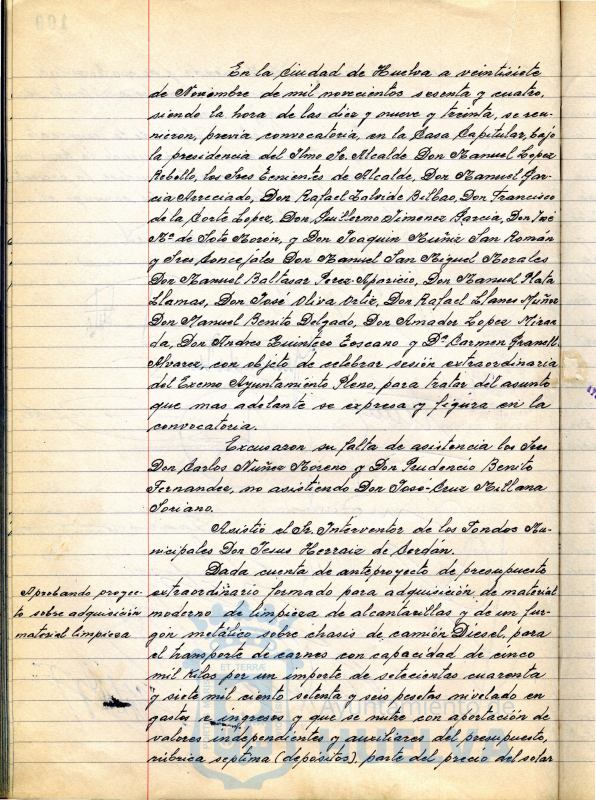 En la Ciudad de Huelva a veintisiete
de Noviembre de mil novecientos sesenta y cuatro,
siendo la hora de las diez y nueve y treinta, se reu-
nieron, previa convocatoria, en la Casa Capitular, bajo
la presidencia del Ilmo Sr. Alcalde Don Manuel López
Rebollo, los Sres Tenientes de Alcalde, Don Manuel Gar-
cia Don Rafael Bilbao, Don Francisco
de la Corte Lopez, Don Guillermo Jimenez Garcia, Don José
Mª de Soto Morón, y Don Joaquin Muñiz San Román
y Sres Concejales Don Manuel San Miguel Morales
Don Manuel Baltasar Perez-Aparicio, Don Manuel Plata
Llamas, Don José Oliva Ortiz, Don Rafael Llanes Muñoz
Don Manuel Benito Delgado, Don Amador Lopez Miran
da, Don Andres Quintero Toscano y Dª Carmen Granell
Alvarez, con objeto de celebrar sesión extraordinaria
del Excmo Ayuntamiento Pleno, para tratar del asunto
que mas adelante se expresa y figura en la
convocatoria.
Excusaron su falta de asistencia los Sres
Don Carlos Nuñez Moreno y Don Prudencio Benito
Fernandez, no asistiendo Don José-Cruz Millana
Soriano.
Asistió el Sr. Interventor de los Fondos Mu-
nicipales Don Jesus Herraiz de Serdán.
Dada cuenta de anteproyecto de presupuesto
Aprobando proyec-
to sobre adquisición
material limpieza
extraordinario formado para adquisición de material
moderno de limpieza de alcantarillas y de un fur-
gón metálico sobre chasis de camión Diesel, para
el transporte de carnes con capacidad de cinco
mil kilos por un importe de setecientas cuarenta
y siete mil ciento setenta y seis pesetas nivelado en
gastos e ingresos y que se nutre con aportación de
valores independientes y auxiliares del presupuesto,
rúbrica septima (depositos), parte del precio del solar
ET TERRÆ
Ayuntamiento de
HUELVA